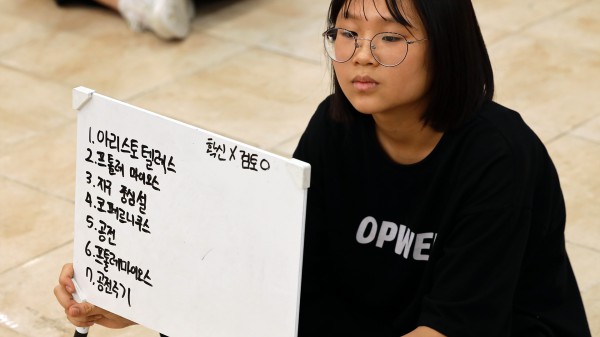 확신 X 검토 O
1. 아리스토텔레스
2. 프톨레마이오스
3. 지구 중심설
4. 코페르니쿠스
5. 공전
6. 프톨레마이오스
7. 공전주기
OPWE